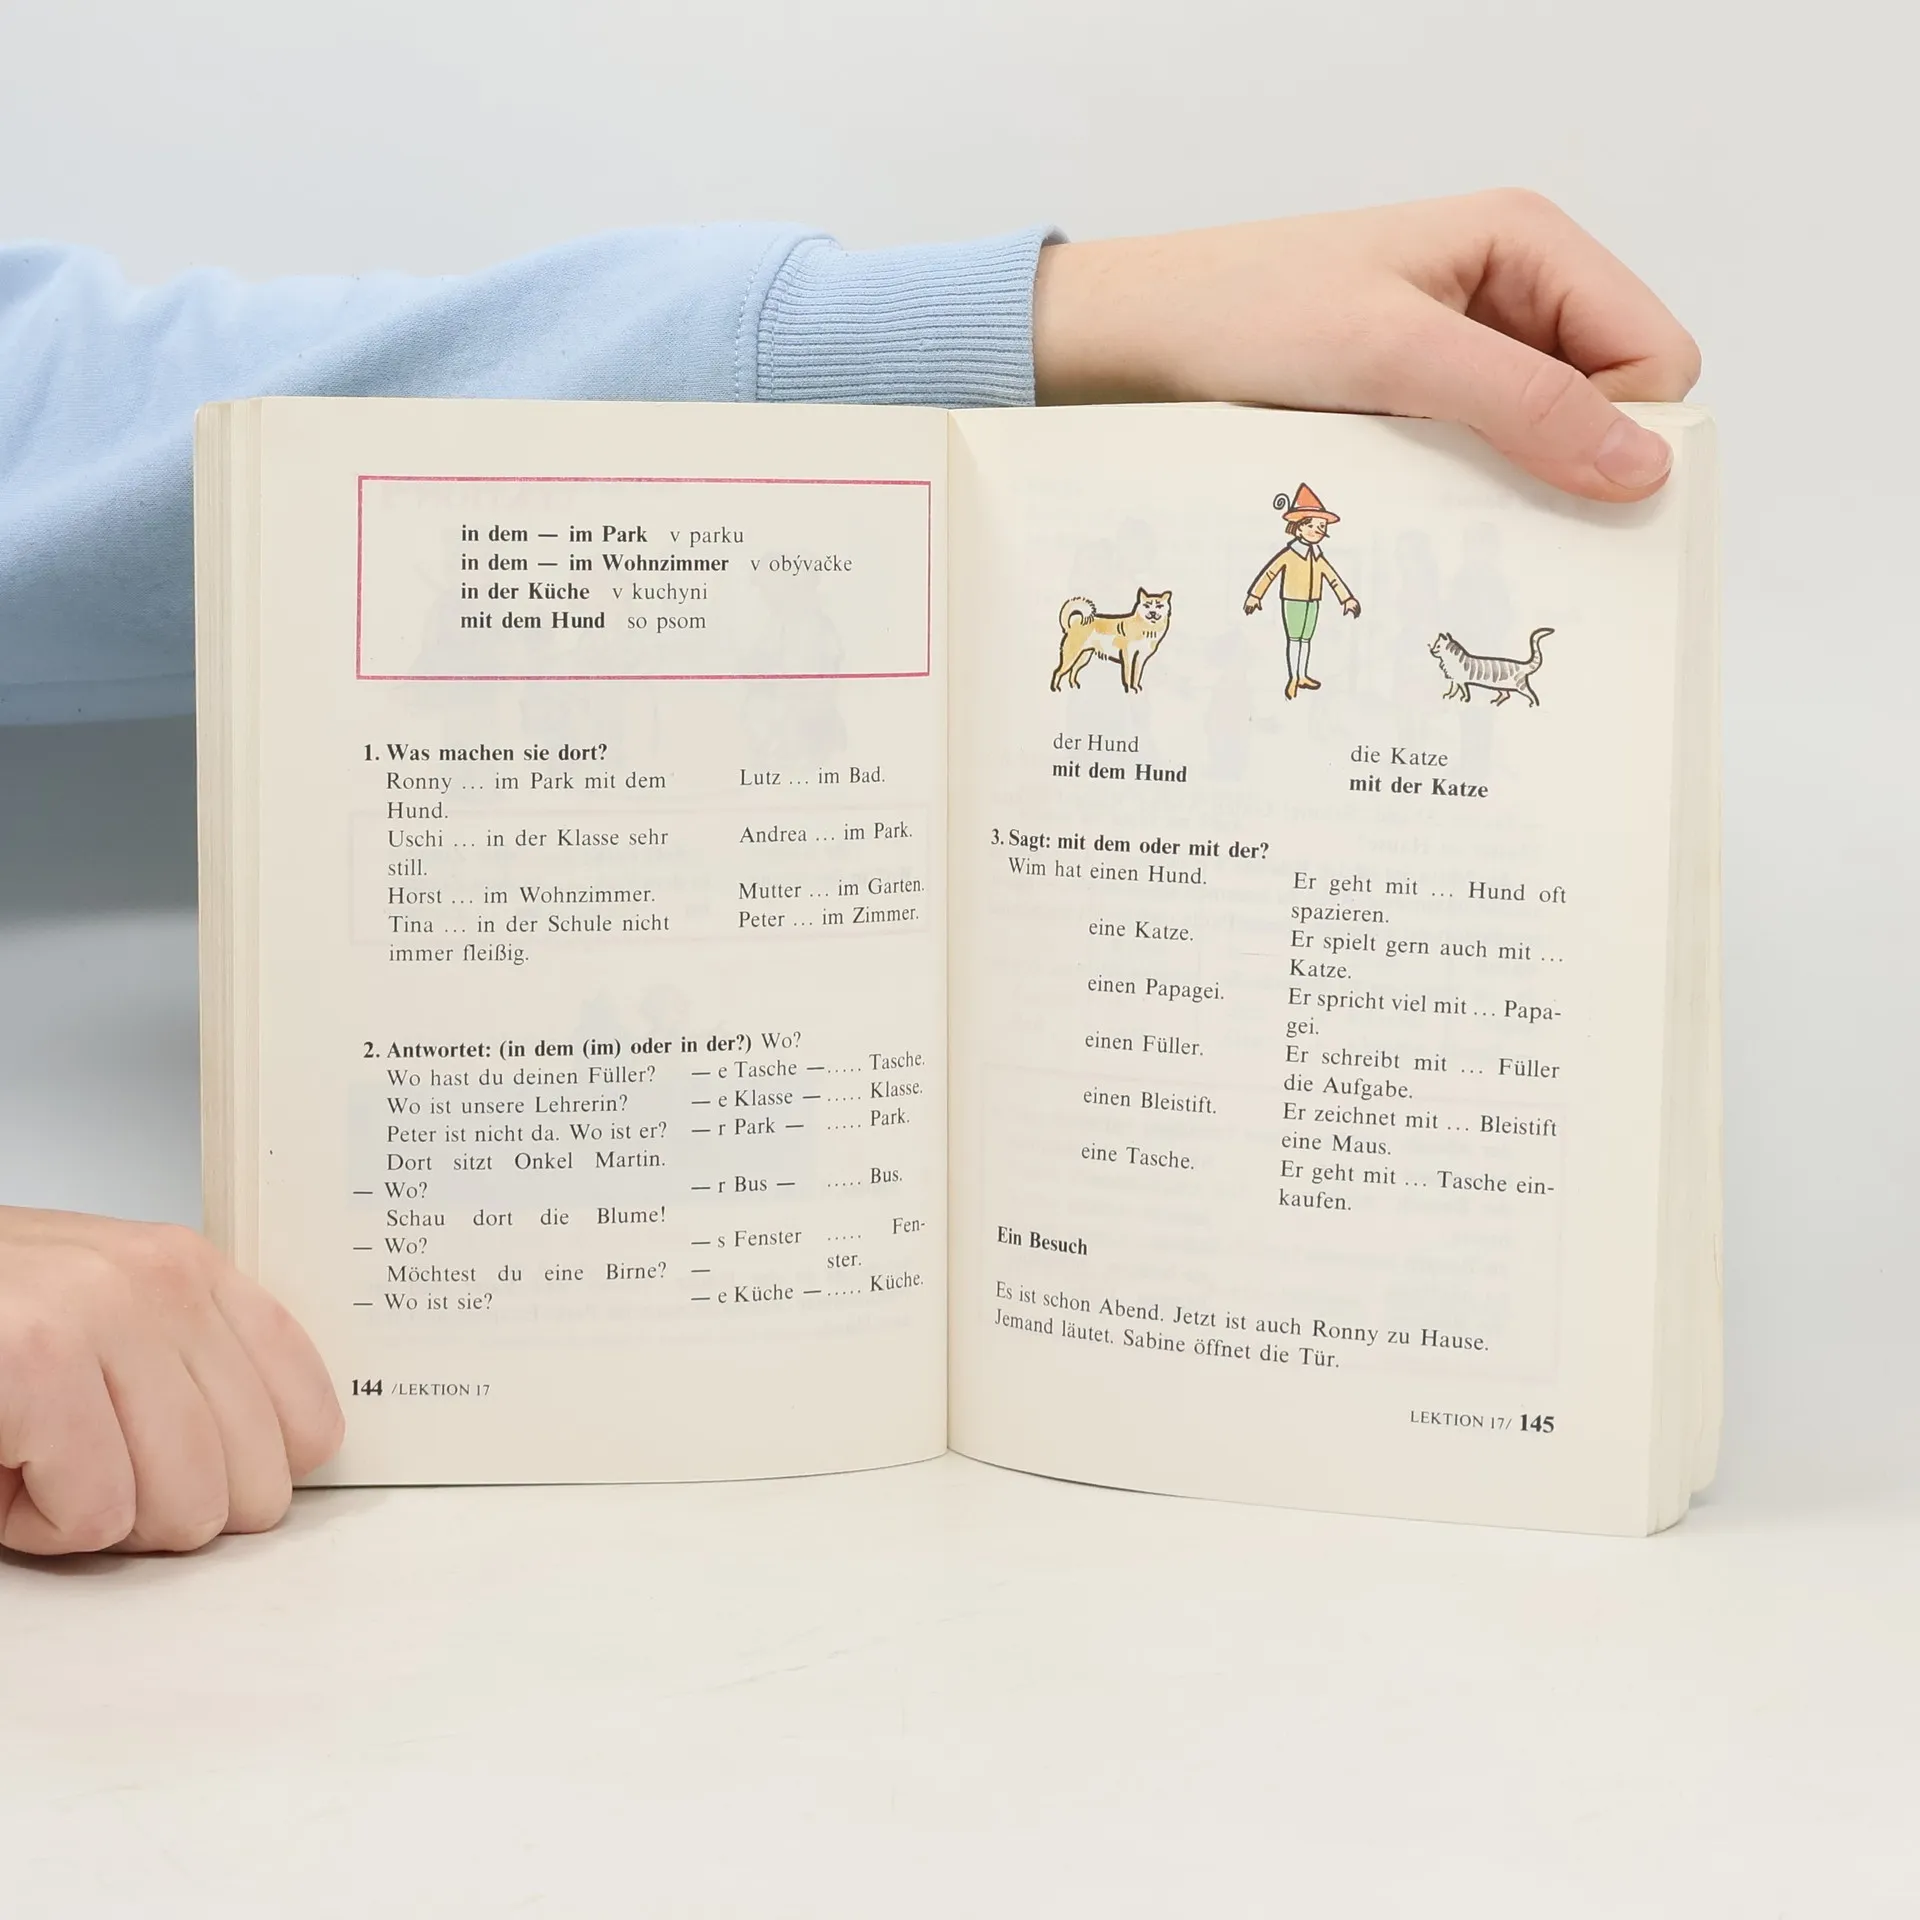 in dem — im Park v parku
in dem — im Wohnzimmer v obývačke
in der Küche v kuchyni
mit dem Hund so psom
1. Was machen sie dort?
Ronny ... im Park mit dem
Hund.
Uschi ... in der Klasse sehr
still.
Horst ... im Wohnzimmer.
Tina ... in der Schule nicht
immer fleißig.
Lutz ... im Bad.
Andrea ... im Park.
Mutter ... im Garten.
Peter ... im Zimmer.
2. Antwortet: (in dem (im) oder in der?) Wo?
Wo hast du deinen Füller? — e Tasche —..... Tasche.
Wo ist unsere Lehrerin? — e Klasse — ..... Klasse.
Peter ist nicht da. Wo ist er? — r Park — ..... Park.
Dort sitzt Onkel Martin.
— Wo? — r Bus — ..... Bus.
Schau dort die Blume!
— Wo? — s Fenster ..... Fen-
Möchtest du eine Birne? — ster.
— Wo ist sie? — e Küche —..... Küche.
144 /LEKTION 17
der Hund
mit dem Hund
die Katze
mit der Katze
3. Sagt: mit dem oder mit der?
Wim hat einen Hund. Er geht mit ... Hund oft
spazieren.
eine Katze. Er spielt gern auch mit ...
Katze.
einen Papagei. Er spricht viel mit ... Papa-
gei.
einen Füller. Er schreibt mit ... Füller
die Aufgabe.
einen Bleistift. Er zeichnet mit ... Bleistift
eine Maus.
eine Tasche. Er geht mit ... Tasche ein-
kaufen.
Ein Besuch
Es ist schon Abend. Jetzt ist auch Ronny zu Hause.
Jemand läutet. Sabine öffnet die Tür.
LEKTION 17/ 145